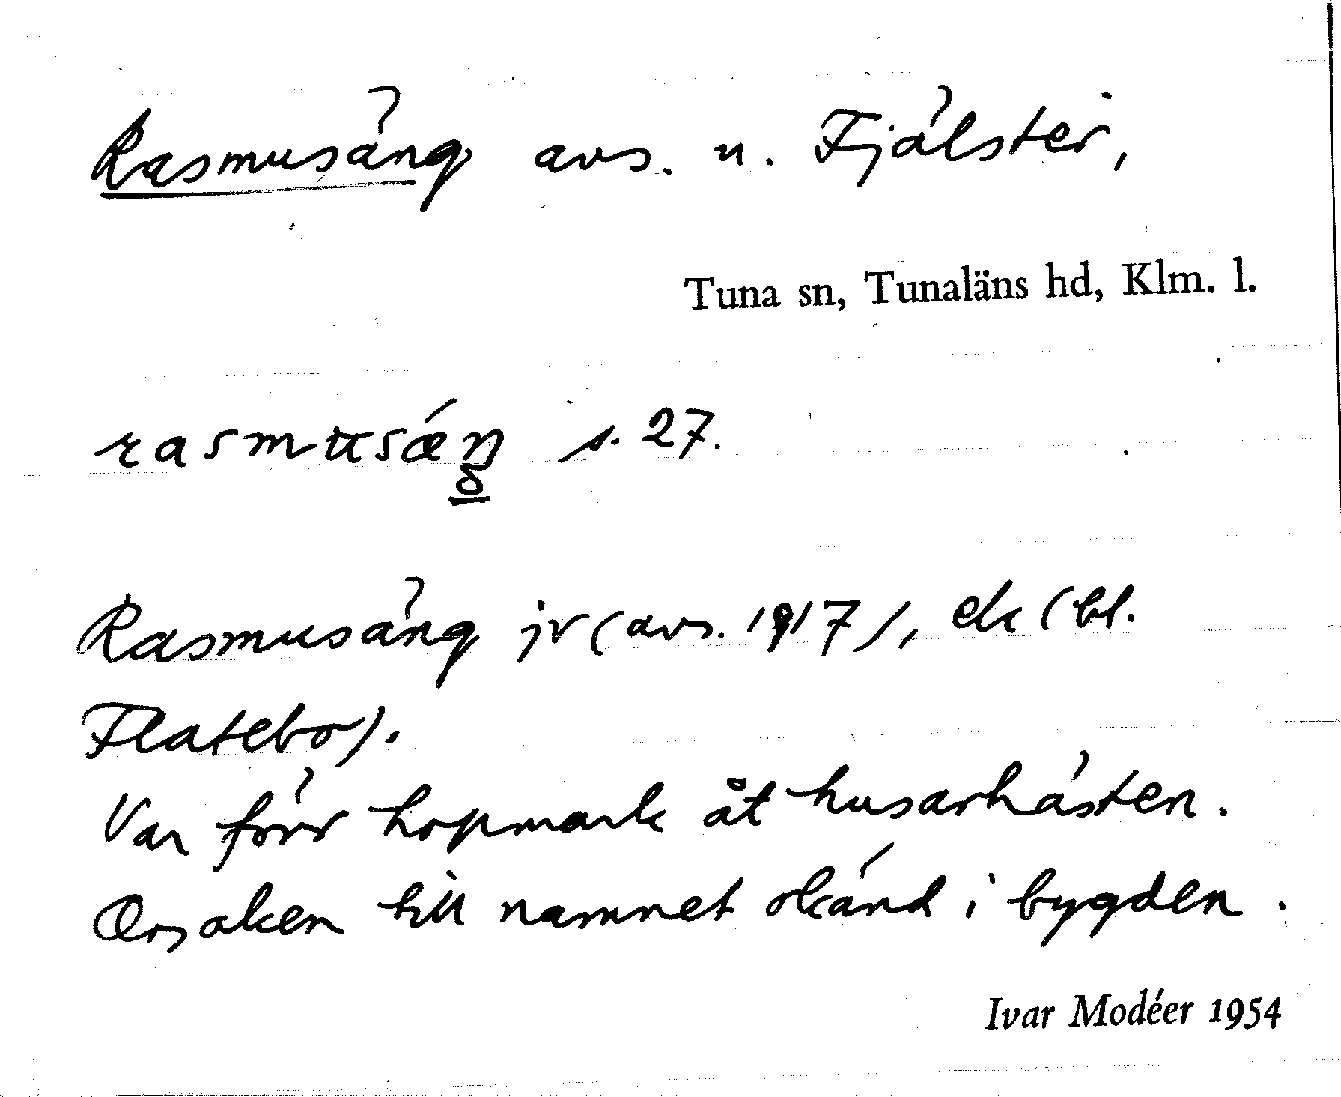 Rasmusäng avs. u. Fjälster,
Tuna sn, Tunaläns hd, Klm. l.
rasmusæŋ s. 27.
Rasmusäng jr (avs. 1917), ek (bl.
Flatebo).
Var förr hopmark åt husarhästen.
Orsaken till namnet okänd i bygden.
Ivar Modéer 1954